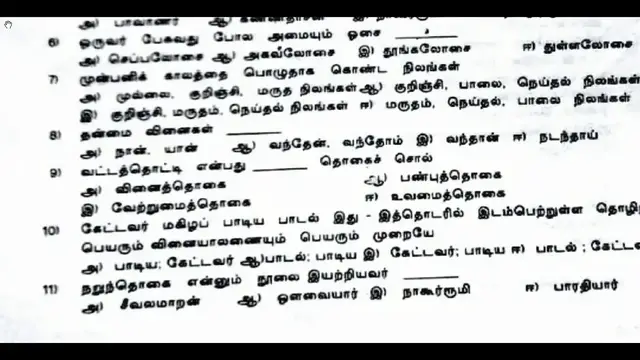 அ) பாவாணர்
6) ஒருவர் பேசுவது போல அமையும் ஓசை ______
அ) செப்பலோசை ஆ) அகவலோசை இ) தூங்கலோசை ஈ) துள்ளலோசை
7) முன்பனிக் காலத்தை பொழுதாக கொண்ட நிலங்கள்
அ) முல்லை, குறிஞ்சி, மருத நிலங்கள் ஆ) குறிஞ்சி, பாலை, நெய்தல் நிலங்கள்
இ) குறிஞ்சி, மருதம், நெய்தல் நிலங்கள் ஈ) மருதம், நெய்தல், பாலை நிலங்கள்
8) தன்மை வினைகள் ______
அ) நான், யான் ஆ) வந்தேன், வந்தோம் இ) வந்தான் ஈ) நடந்தாய்
9) வட்டத்தொட்டி என்பது ______ தொகைச் சொல்
அ) வினைத்தொகை ஆ) பண்புத்தொகை
இ) வேற்றுமைத்தொகை ஈ) உவமைத்தொகை
10) கேட்டவர் மகிழப் பாடிய பாடல் இது - இத்தொடரில் இடம்பெற்றுள்ள
பெயரும் வினையாலணையும் பெயரும் முறையே
அ) பாடிய; கேட்டவர் ஆ)பாடல்; பாடிய இ) கேட்டவர்; பாடிய ஈ) பாடல் ;
11) நறுந்தொகை என்னும் நூலை இயற்றியவர் ______
அ) சீவலமாறன் ஆ) ஔவையார் இ) நாகூர்ரூமி ஈ) பாரதியார்